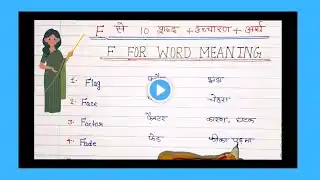 F से 10 शब्द + उच्चारण + अर्थ
F FOR WORD MEANING
1. Flag झंडा
2. Face चेहरा
3. Factor फैक्टर कारण, घटक
4. Fade फेड फीका पड़ना